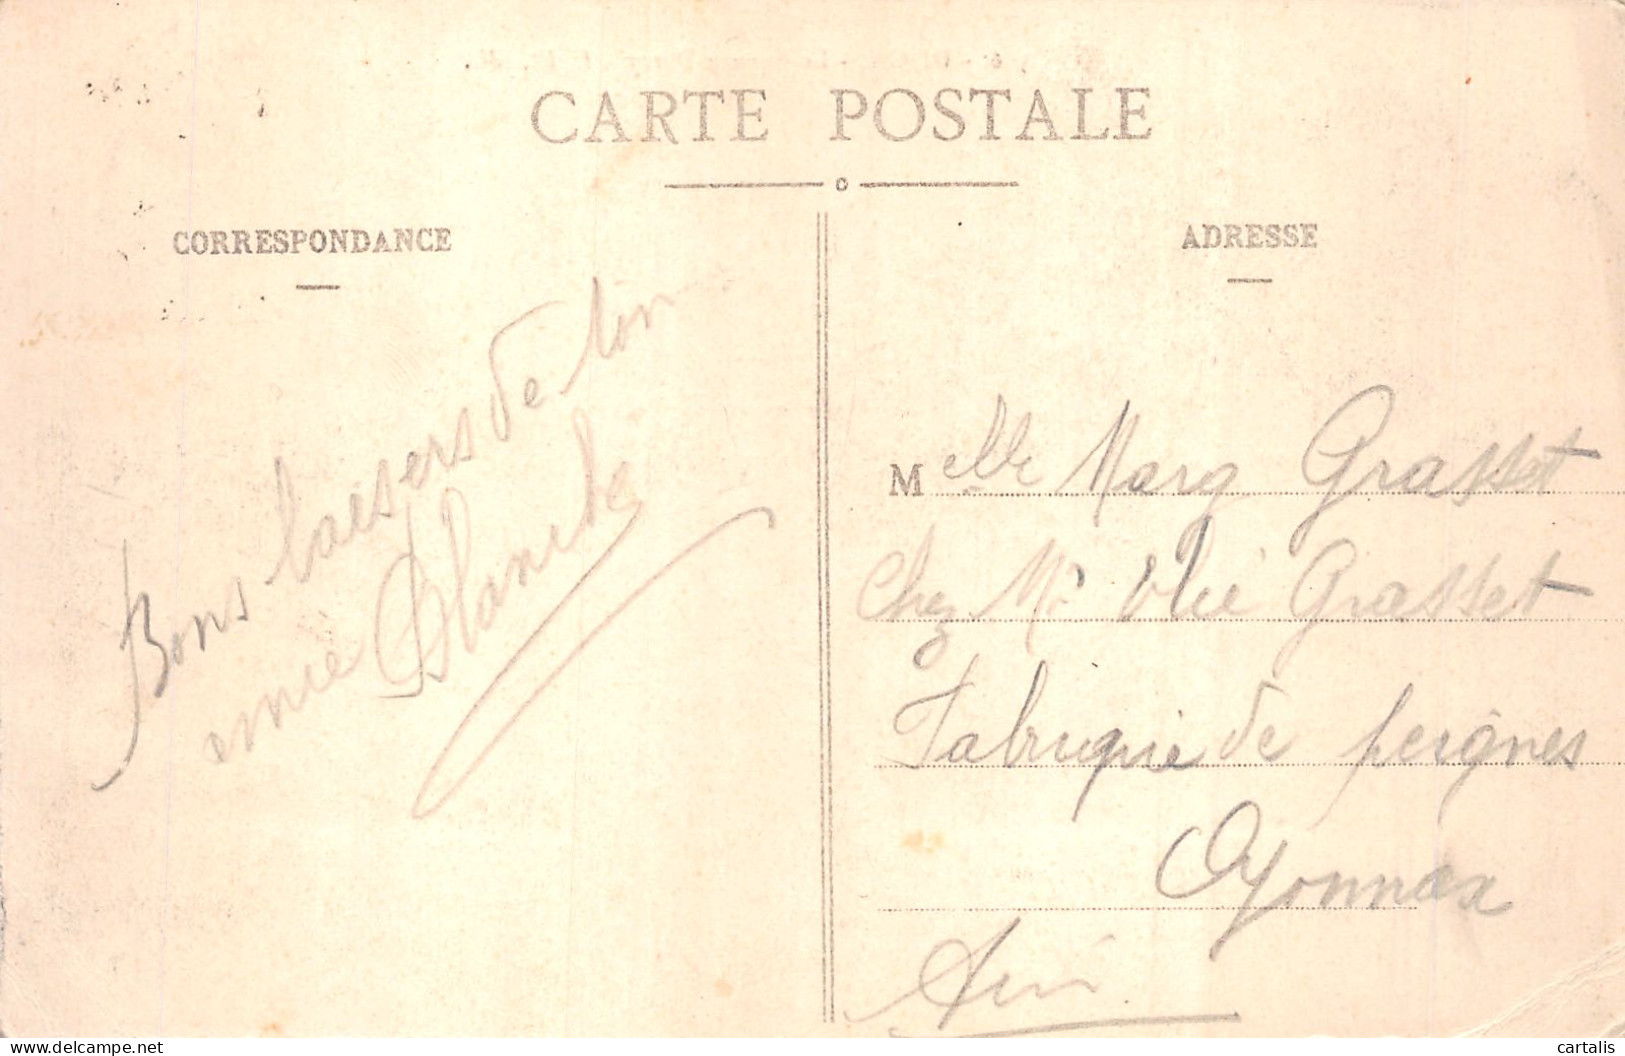 CARTE POSTALE
CORRESPONDANCE
Bons baisers de ton
amie Blanche
ADRESSE
Melle Marg Grasset
Chez Mr Grasset
Fabrique de peignes
Oyonnax
Ain
delcampe.net
cartalis